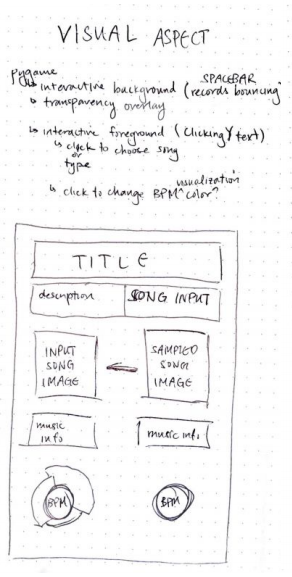 VISUAL ASPECT
Pygame
SPACEBAR
↳ interactive background (records bouncing)
↳ transparency overlay
↳ interactive foreground (clicking / text)
↳ click to choose song
or
type
visualization
↳ click to change BPM ^ color?
TITLE
description
SONG INPUT
INPUT SONG IMAGE
←
SAMPLED SONG IMAGE
music info
music info
BPM
BPM